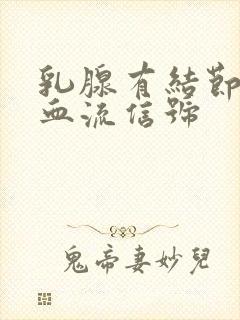 乳腺有結節
血流信號
鬼帝妻妙兒